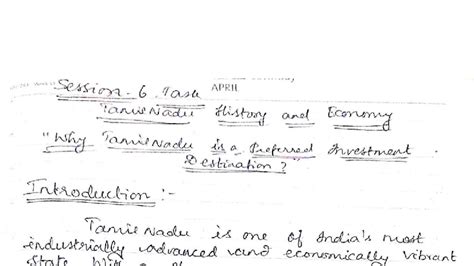 Session-6 Task APRIL
TamilNadu History and Economy
"Why TamilNadu is a Preferred Investment
Destination?"
Introduction :-
TamilNadu is one of India's most
industrially advanced and economically vibrant
State